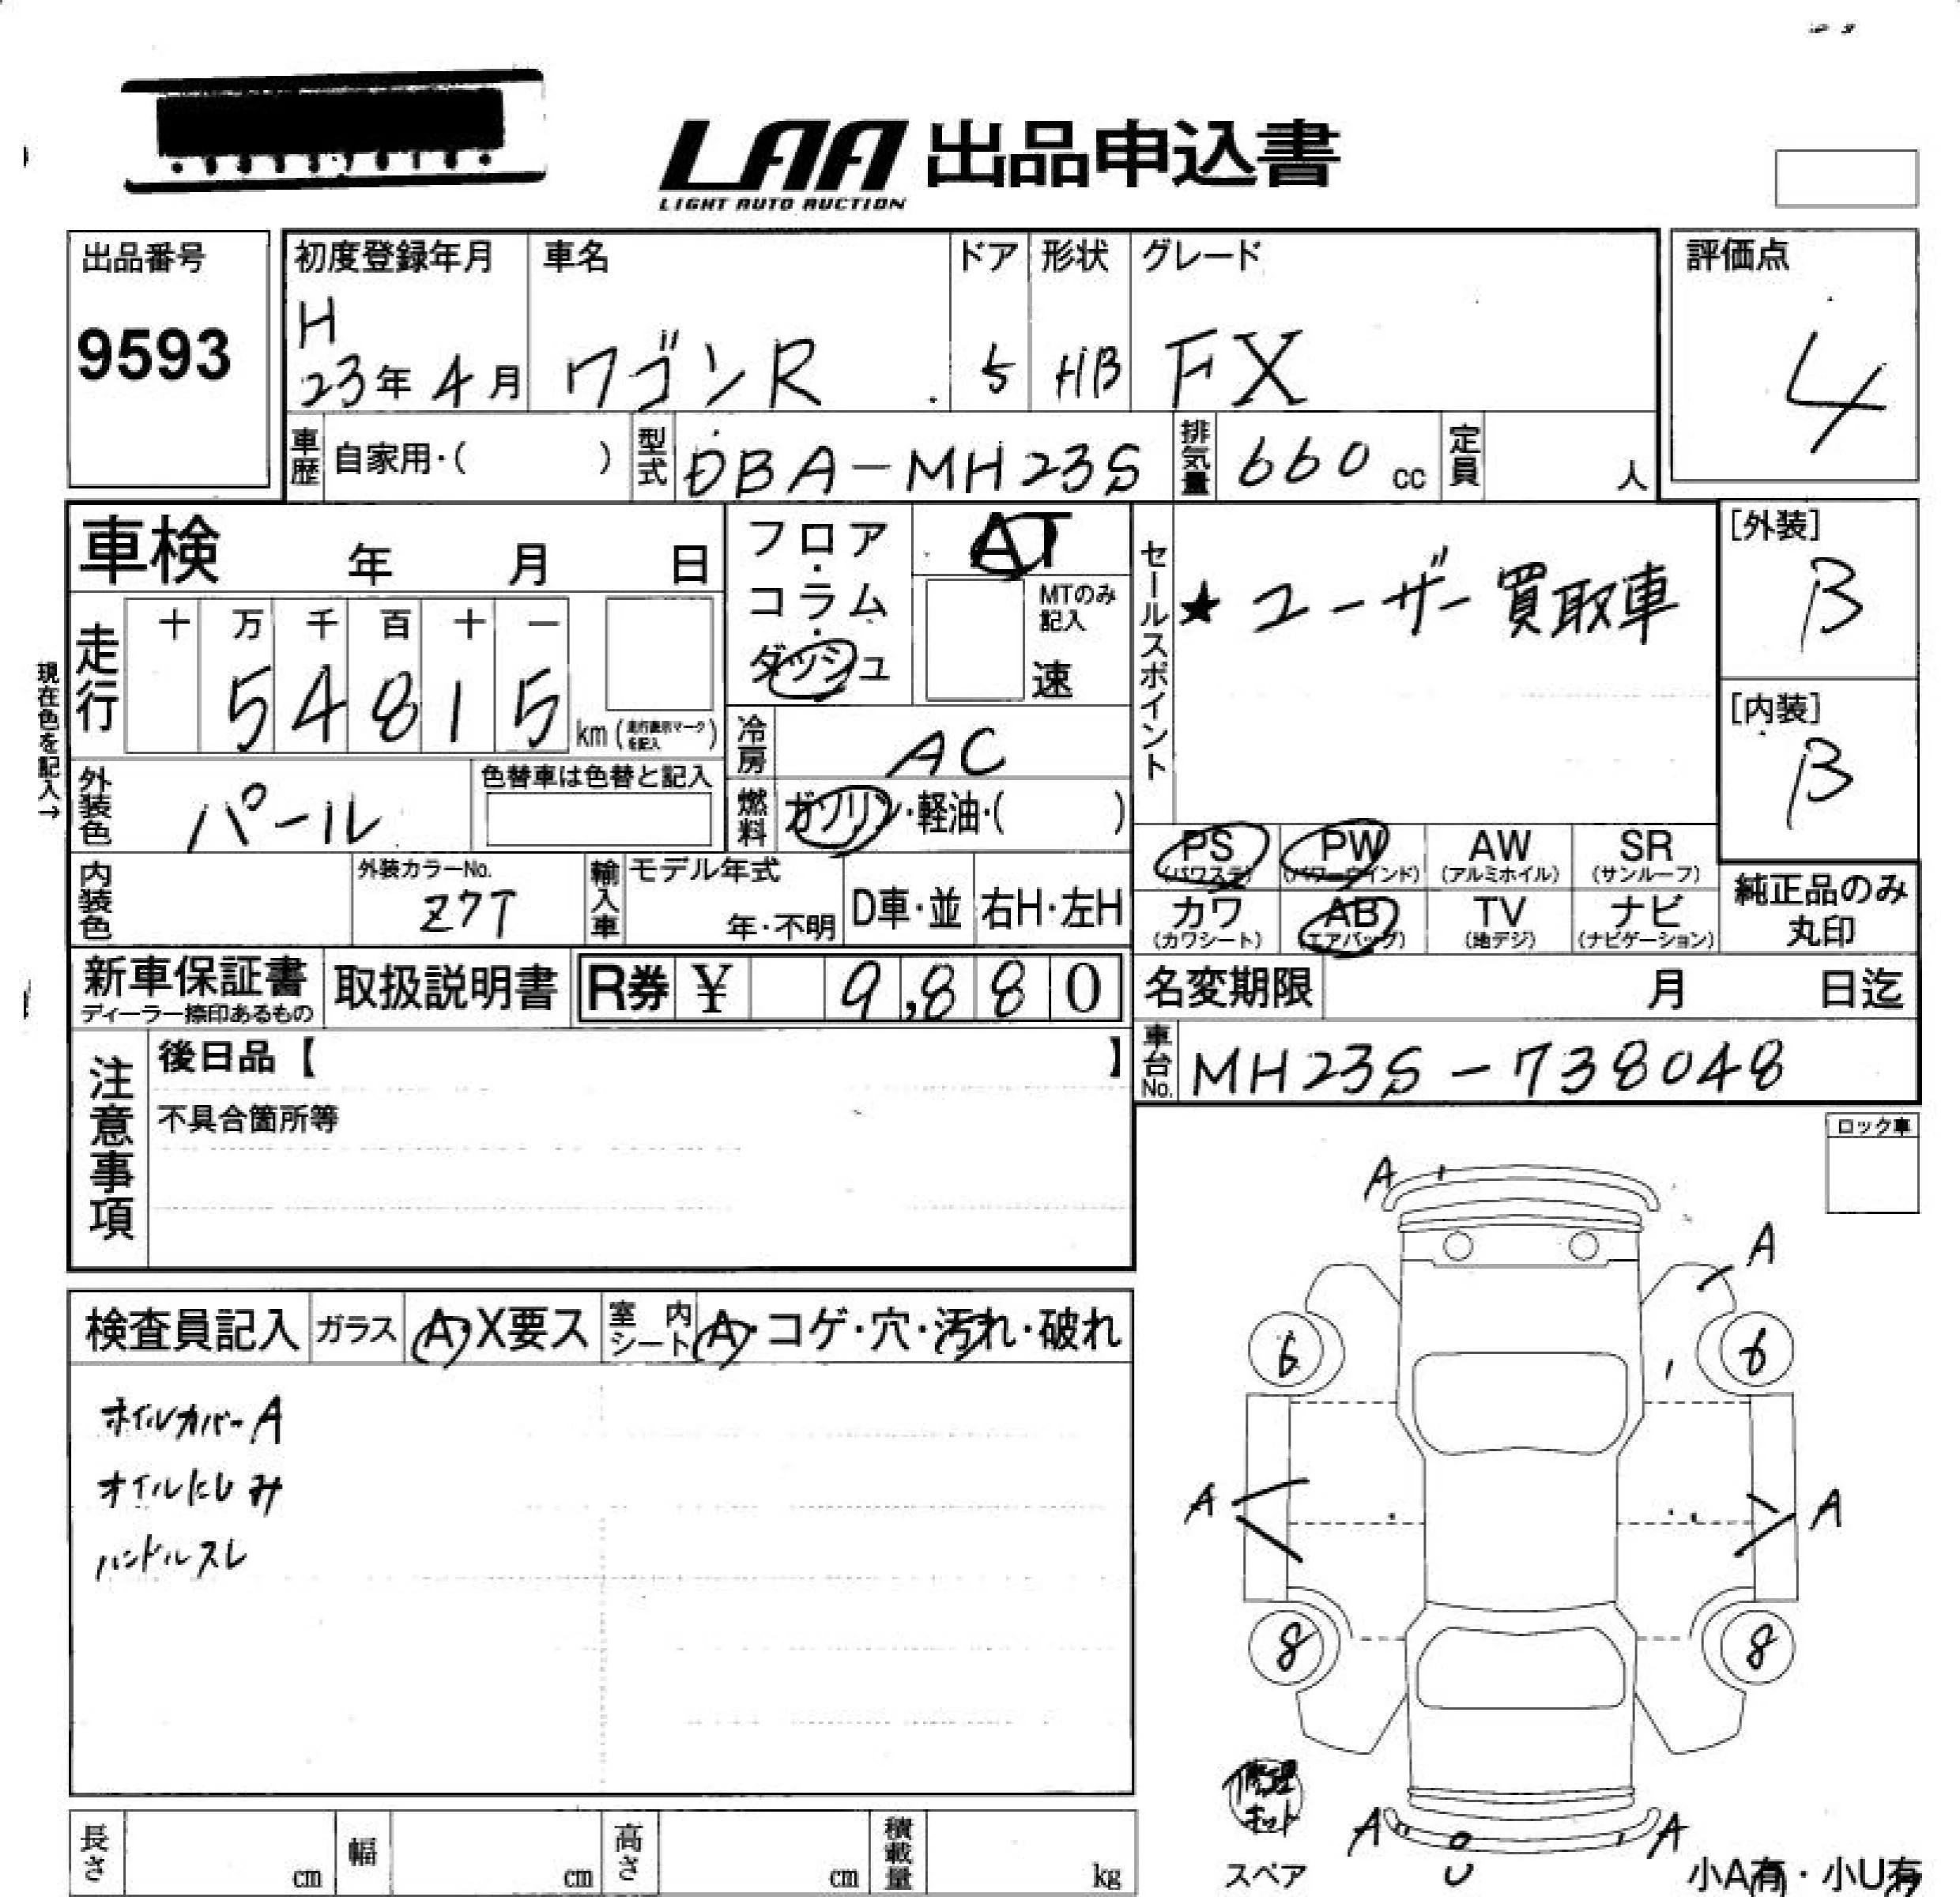 LAA 出品申込書
LIGHT AUTO AUCTION
出品番号
9593
初度登録年月
H
23年 4月
車名
ワゴンR
ドア
5
形状
HB
グレード
FX
評価点
4
車歴 自家用・( )
型式 DBA-MH23S
排気量 660 cc
定員 人
車検 年 月 日
フロア・コラム・ダッシュ
AT
MTのみ記入
速
セールスポイント
★ユーザー買取車
[外装]
B
[内装]
B
現在色を記入→
走行
十 万 千 百 十 一
5 4 8 1 5 km (走行表示マークを記入)
冷房 AC
外装色 パール
色替車は色替と記入
燃料 ガソリン・軽油・( )
PS (パワステ)
PW (パワーウインド)
AW (アルミホイル)
SR (サンルーフ)
カワ (カワシート)
AB (エアバッグ)
TV (地デジ)
ナビ (ナビゲーション)
純正品のみ
丸印
内装色
外装カラーNo.
Z7T
輸入車
モデル年式
年・不明
D車・並
右H・左H
新車保証書
ディーラー捺印あるもの
取扱説明書
R券 ¥ 9,880
名変期限 月 日迄
車台No. MH23S-738048
注意事項
後日品【 】
不具合箇所等
ロック車
検査員記入
ガラス A・X要ス
室内シート A・コゲ・穴・汚れ・破れ
ホイルカバーA
オイルにじみ
ハンドルスレ
A
A
6
6
A
A
8
8
修理
キット
スペア
A
U
A
小A有・小U有
長さ cm
幅 cm
高さ cm
積載量 kg